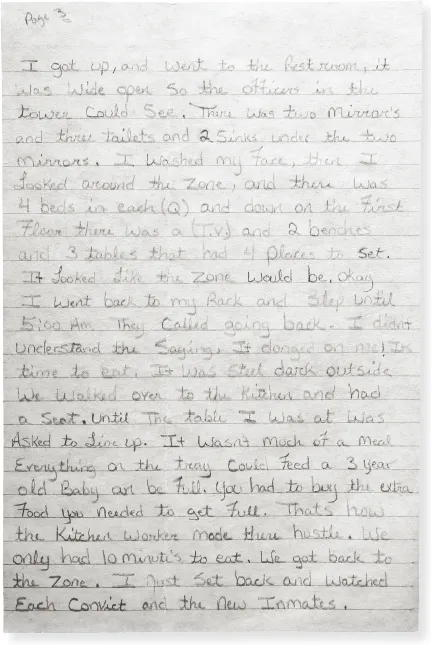 Page 3
I got up, and went to the Restroom, it
was wide open So the officers in the
tower Could See. There was two Mirror's
and three tailets and 2 Sinks under the two
mirrors. I Washed my Face, then I
Looked around the Zone, and there was
4 beds in each (Q) and down on the First
Floor there was a (T.V) and 2 benches
and 3 tables that had 4 places to Set.
It Looked Like the Zone Would be, Okay
I Went back to my Rack and Slep Until
5:00 Am. They Called going back. I didn't
Understand the Saying, It donged on me! Its
time to eat. It Was Steel dark outside
We Walked over to the Kitchen and had
a Seat. Until The table I Was at Was
Asked to Line up. It Wasn't Much of a Meal
Everything on the tray Could Feed a 3 year
old Baby an be Full. You had to buy the extra
Food you Needed to get Full. That's how
the Kitchen Worker made there hustle. We
only had 10 minuti's to eat. We got back to
the Zone. I Just Set back and Watched
Each Convict and the New Inmates.